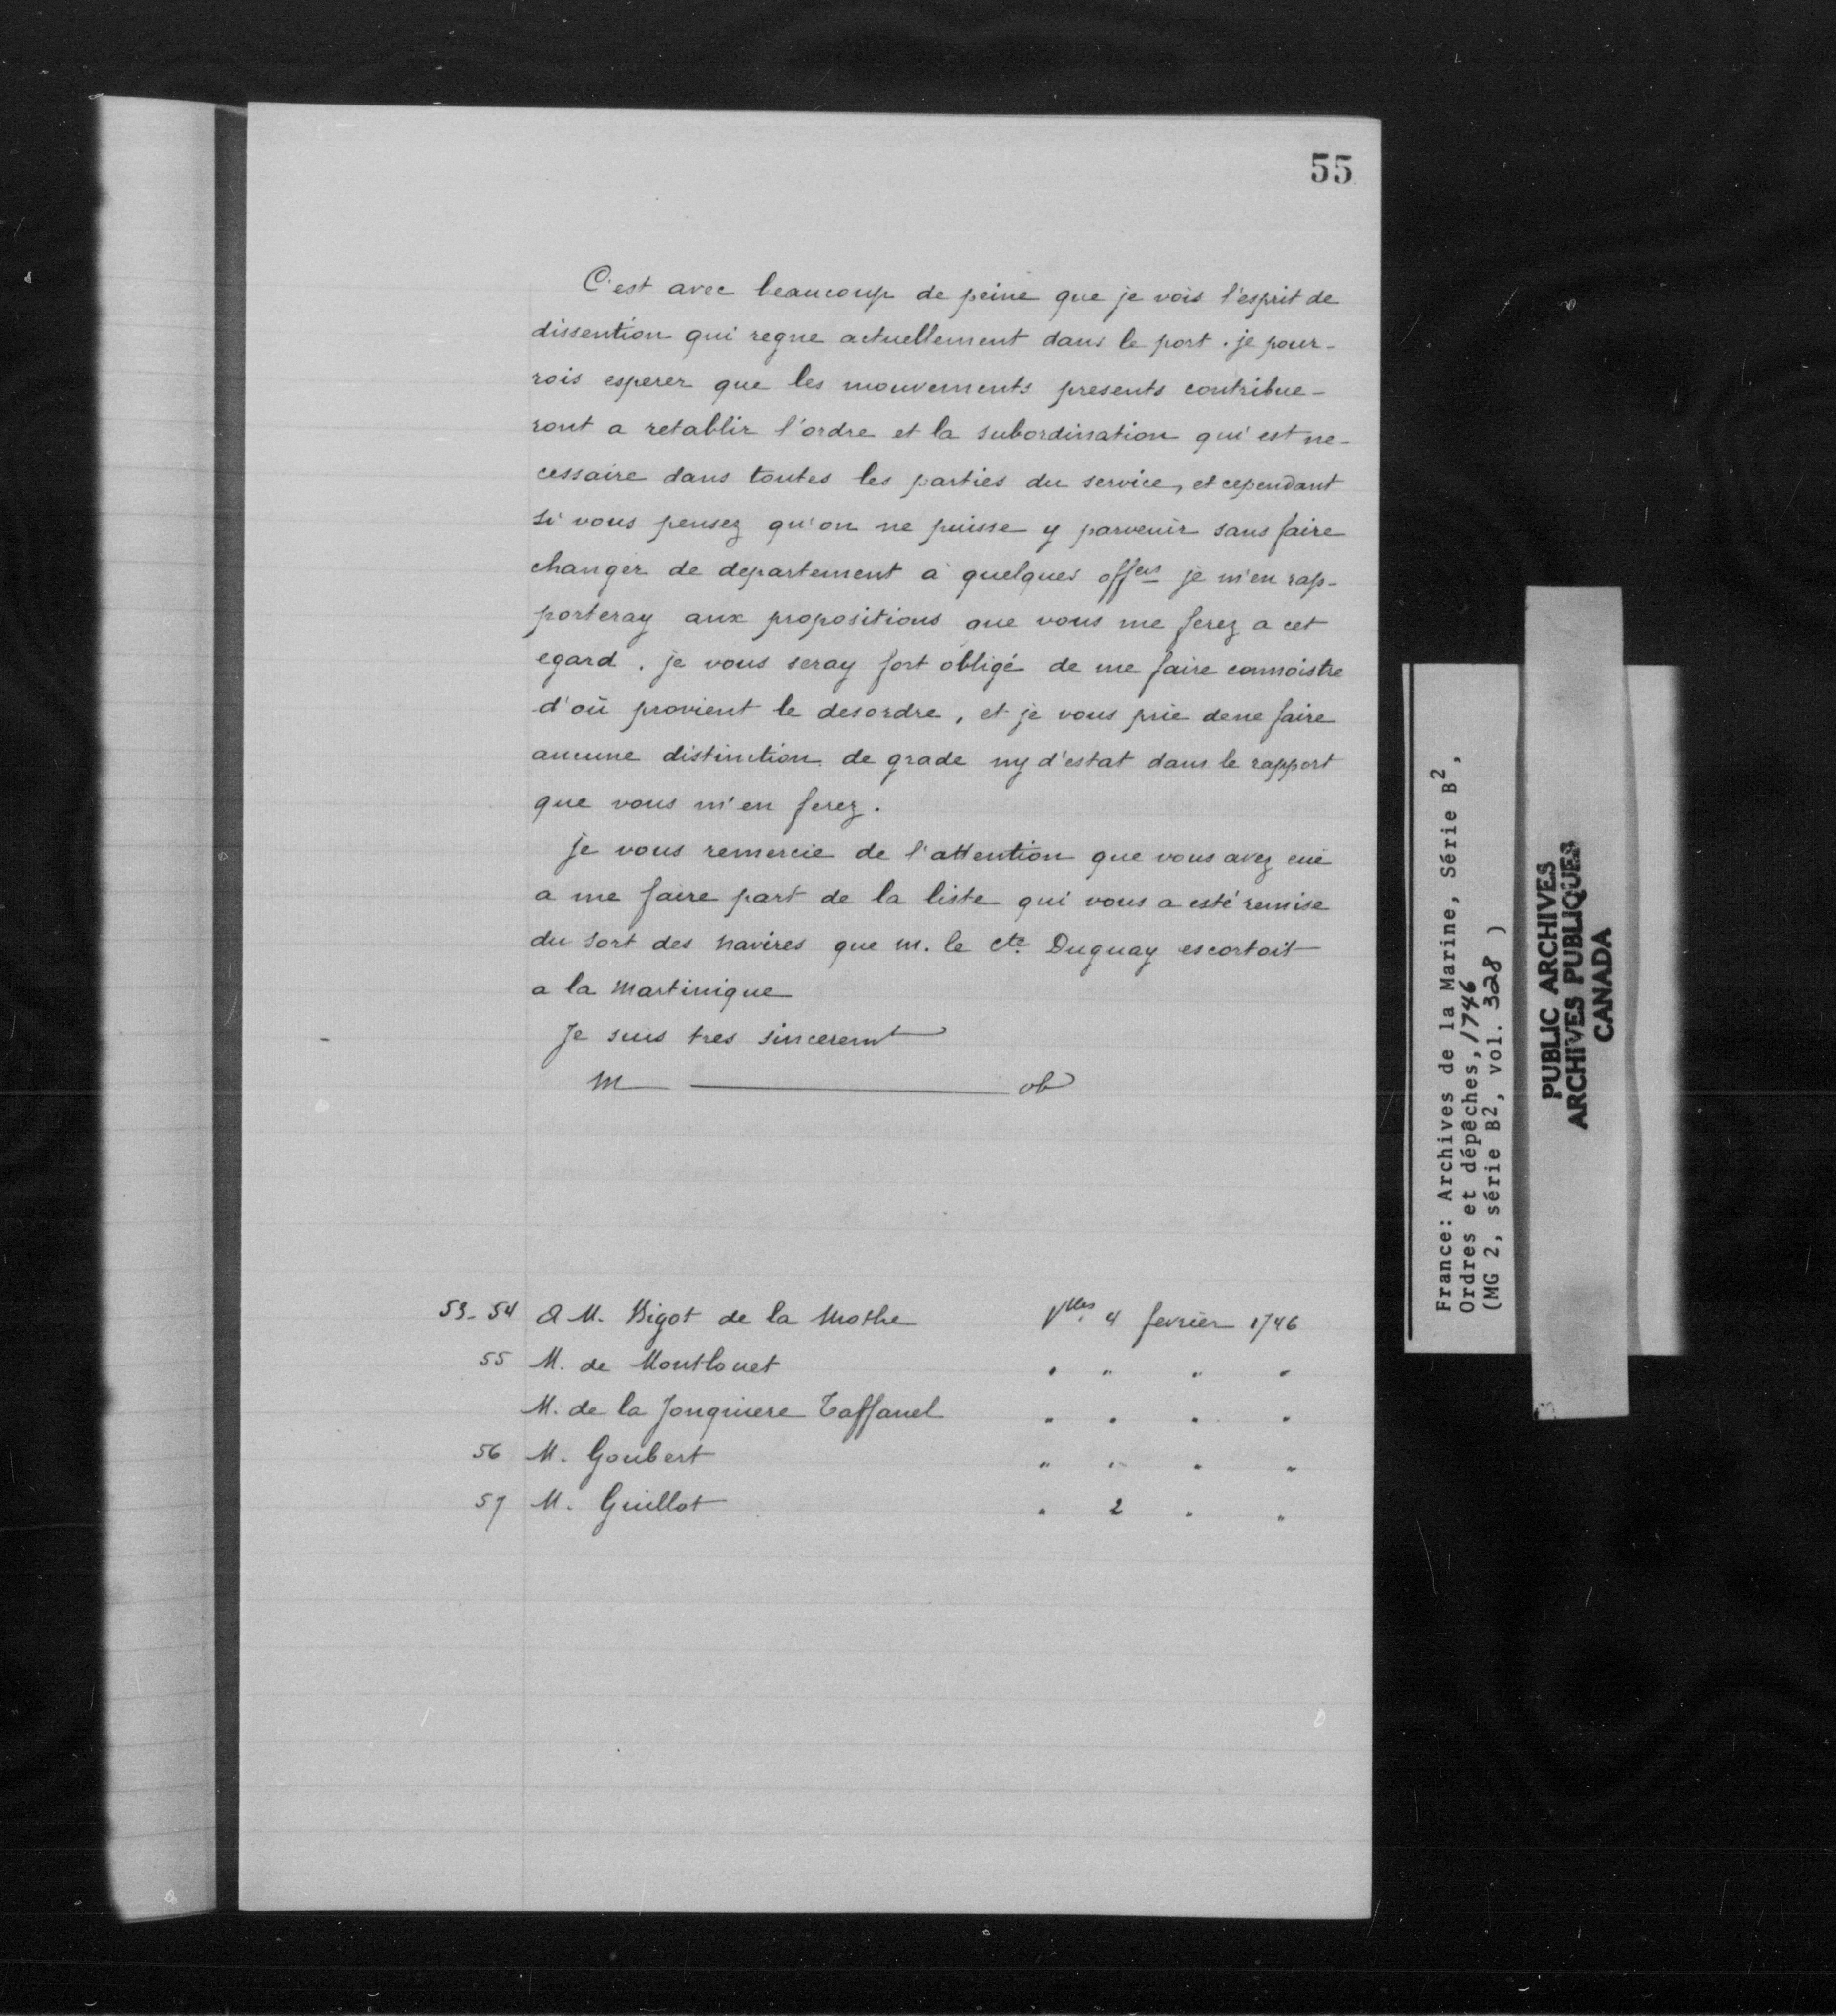 55
C'est avec beaucoup de peine que je vois l'esprit de
dissention qui regne actuellement dans le port. je pour-
rois esperer que les mouvements presents contribue-
ront a retablir l'ordre et la subordination qui est ne-
cessaire dans toutes les parties du service, et cependant
si vous pensez qu'on ne puisse y parvenir sans faire
changer de departement à quelques offers je m'en rap-
porteray aux propositions que vous me ferez a cet
egard. je vous seray fort obligé de me faire connoistre
d'où provient le desordre, et je vous prie de ne faire
aucune distinction de grade ny d'estat dans le rapport
que vous m'en ferez.
Je vous remercie de l'attention que vous avez eüe
a me faire part de la liste qui vous a esté remise
du sort des navires que m. le cte. Duguay escortoit
a la Martinique
Je suis tres sinceremt
M ob
53-54 A M. Bigot de la Mothe Vlles 4 fevrier 1746
55 M. de Montlouet " " " "
M. de la Jonquiere Taffanel " " " "
56 M. Goubert " " " "
57 M. Guillot " 2 " "
France: Archives de la Marine, Série B2,
Ordres et dépêches, 1746
(MG 2, série B2, vol. 328 )
PUBLIC ARCHIVES
ARCHIVES PUBLIQUES
CANADA